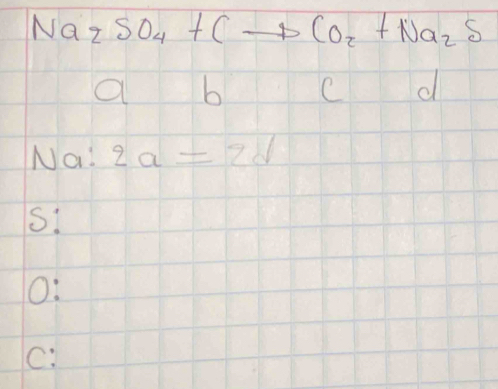 Na₂SO₄ + C → CO₂ + Na₂S
a b c d
Na: 2a = 2d
S:
O:
C: